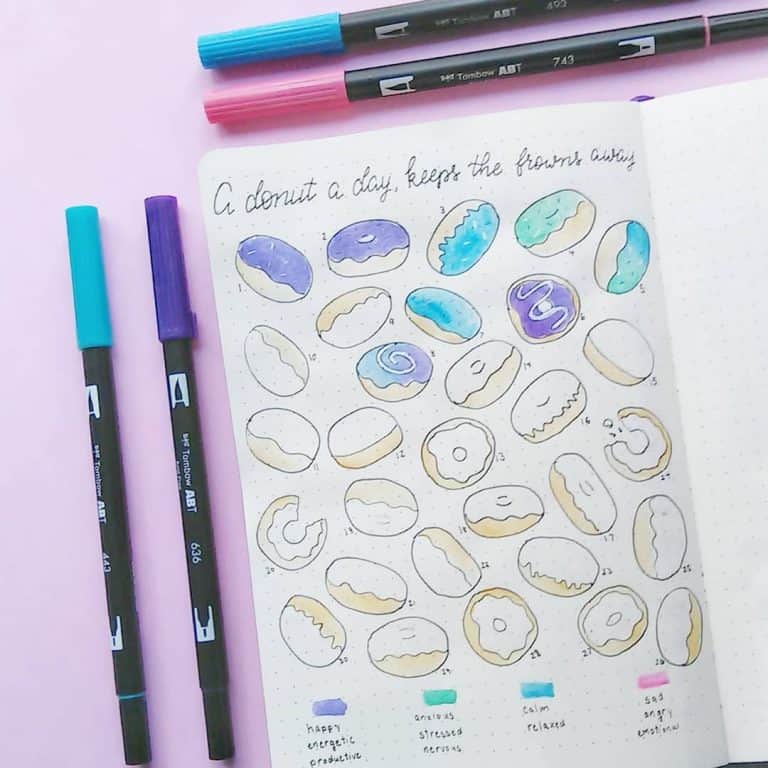 493
Tombow ABT
743
Tombow ABT
A donut a day, keeps the frowns away
1
2
3
4
5
10
9
7
6
8
14
15
11
12
13
16
24
20
19
18
17
21
22
23
25
30
29
28
27
26
Tombow ABT
443
Tombow ABT
636
happy
energetic
productive
anxious
stressed
nervous
calm
relaxed
sad
angry
emotional